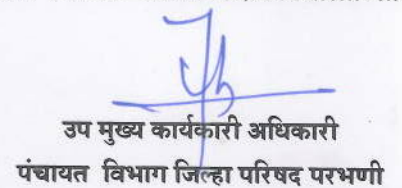 उप मुख्य कार्यकारी अधिकारी
पंचायत विभाग जिल्हा परिषद परभणी